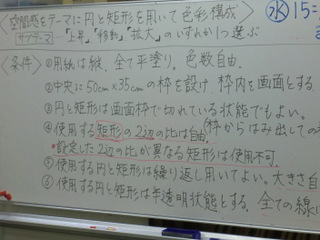 空間感をテーマに円と矩形を用いて色彩構成
サブテーマ 「上昇」「移動」「拡大」のいずれか1つ選ぶ
水 15:
〈条件〉 ①用紙は縦、全て平塗り。色数自由.
②中央に50cm×35cmの枠を設け、枠内を画面とする
③円と矩形は画面枠で切れている状態でもよい。
④使用する矩形の2辺の比は自由.(枠からはみ出しての
*設定した2辺の比が異なる矩形は使用不可.
⑤使用する円と矩形は繰り返し用いてよい。大きさ自
⑥使用する円と矩形は半透明状態とする. 全ての線に